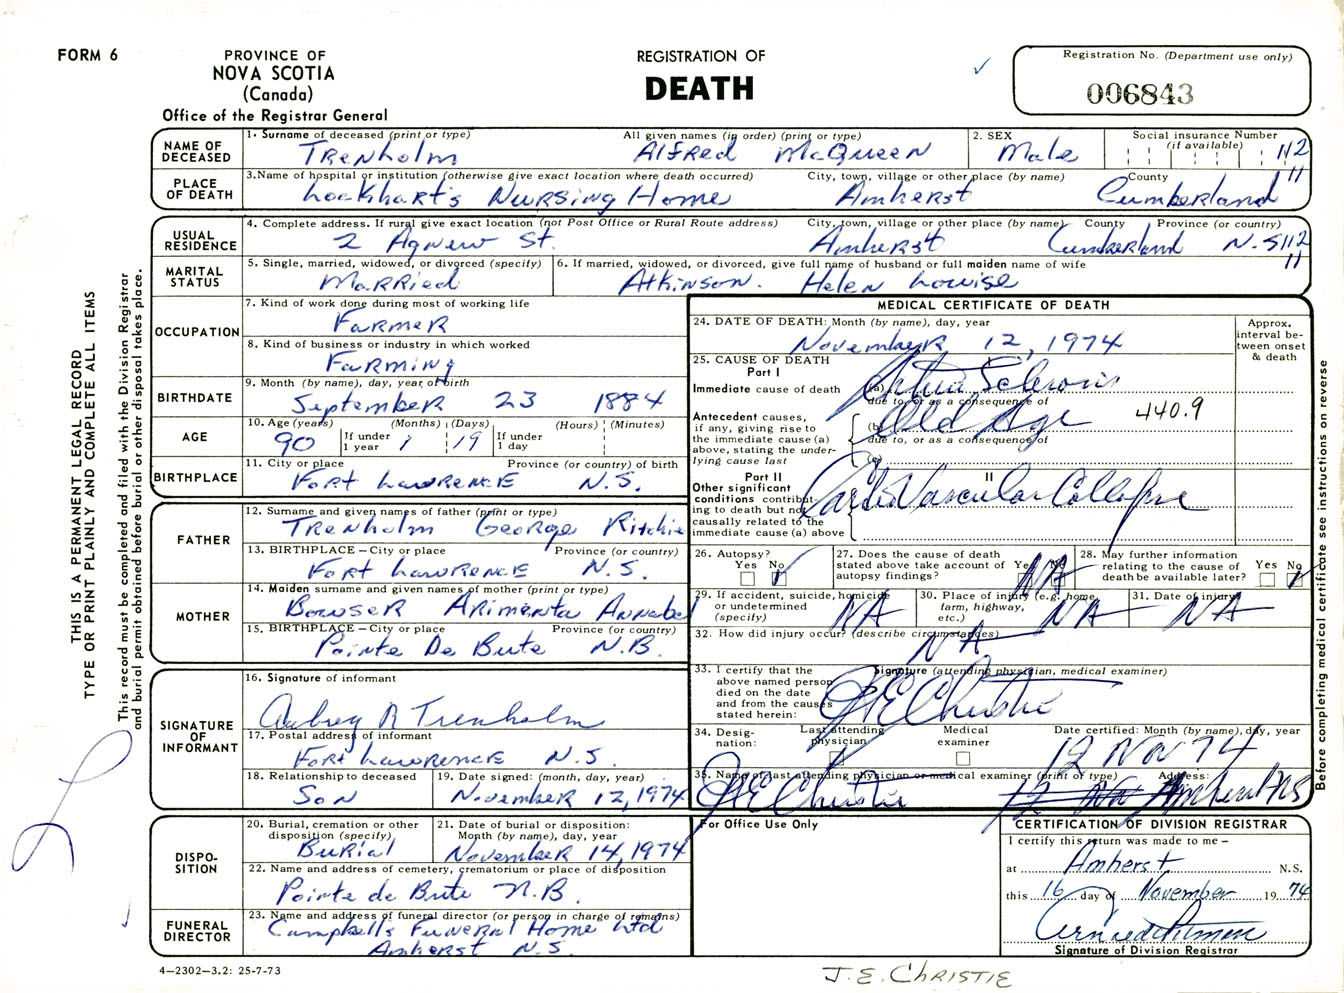 FORM 6
PROVINCE OF
NOVA SCOTIA
(Canada)
Office of the Registrar General
REGISTRATION OF
DEATH
Registration No. (Department use only)
006843
THIS IS A PERMANENT LEGAL RECORD
TYPE OR PRINT PLAINLY AND COMPLETE ALL ITEMS
This record must be completed and filed with the Division Registrar
and burial permit obtained before burial or other disposal takes place.
NAME OF DECEASED
1. Surname of deceased (print or type) All given names (in order) (print or type)
Trenholm Alfred McQueen
2. SEX
Male
Social insurance Number
(if available)
112
PLACE OF DEATH
3. Name of hospital or institution (otherwise give exact location where death occurred) City, town, village or other place (by name) County
11
Lockhart's Nursing Home Amherst Cumberland
USUAL RESIDENCE
4. Complete address. If rural give exact location (not Post Office or Rural Route address) City, town, village or other place (by name) County Province (or country)
2 Agnew St. Amherst Cumberland N.S 112
11
MARITAL STATUS
5. Single, married, widowed, or divorced (specify)
Married
6. If married, widowed, or divorced, give full name of husband or full maiden name of wife
Atkinson. Helen Louise
OCCUPATION
7. Kind of work done during most of working life
Farmer
8. Kind of business or industry in which worked
Farming
BIRTHDATE
9. Month (by name), day, year of birth
September 23 1884
AGE
10. Age (years) (Months) (Days) (Hours) (Minutes)
90 If under 1 year 1 19 If under 1 day
BIRTHPLACE
11. City or place Province (or country) of birth
Fort Lawrence N.S.
FATHER
12. Surname and given names of father (print or type)
Trenholm George Ritchie
13. BIRTHPLACE – City or place Province (or country)
Fort Lawrence N.S.
MOTHER
14. Maiden surname and given names of mother (print or type)
Bowser Arimenta Annabel
15. BIRTHPLACE – City or place Province (or country)
Pointe De Bute N.B.
SIGNATURE OF INFORMANT
16. Signature of informant
Aubrey R Trenholm
17. Postal address of informant
Fort Lawrence N.S.
18. Relationship to deceased
Son
19. Date signed: (month, day, year)
November 12, 1974
DISPOSITION
20. Burial, cremation or other disposition (specify)
Burial
21. Date of burial or disposition:
Month (by name), day, year
November 14, 1974
22. Name and address of cemetery, crematorium or place of disposition
Pointe de Bute N.B.
FUNERAL DIRECTOR
23. Name and address of funeral director (or person in charge of remains)
Campbells Funeral Home Ltd
Amherst N.S.
4–2302–3.2: 25-7-73
MEDICAL CERTIFICATE OF DEATH
24. DATE OF DEATH: Month (by name), day, year
November 12, 1974
Approx. interval between onset & death
25. CAUSE OF DEATH
Part I
Immediate cause of death
(a) Sclerosis
due to, or as a consequence of
Antecedent causes, if any, giving rise to the immediate cause (a) above, stating the underlying cause last
(b) Old Age 440.9
due to, or as a consequence of
(c)
Part II
II
Other significant conditions contributing to death but not causally related to the immediate cause (a) above
Cardio Vascular Collapse
26. Autopsy?
Yes No
27. Does the cause of death stated above take account of autopsy findings?
Yes No
NA
28. May further information relating to the cause of death be available later?
Yes No
29. If accident, suicide, homicide or undetermined (specify)
NA
30. Place of injury (e.g. home, farm, highway, etc.)
NA
31. Date of injury
NA
32. How did injury occur? (describe circumstances)
NA
33. I certify that the above named person died on the date and from the causes stated herein:
Signature (attending physician, medical examiner)
J E Christie
34. Designation:
Last attending physician
Medical examiner
Date certified: Month (by name), day, year
12 Nov 74
35. Name of last attending physician or medical examiner (print or type) Address:
J E Christie Amherst NS
For Office Use Only
CERTIFICATION OF DIVISION REGISTRAR
I certify this return was made to me –
at Amherst N.S.
this 16 day of November 19 74
Signature of Division Registrar
Before completing medical certificate see instructions on reverse
J.E. CHRISTIE